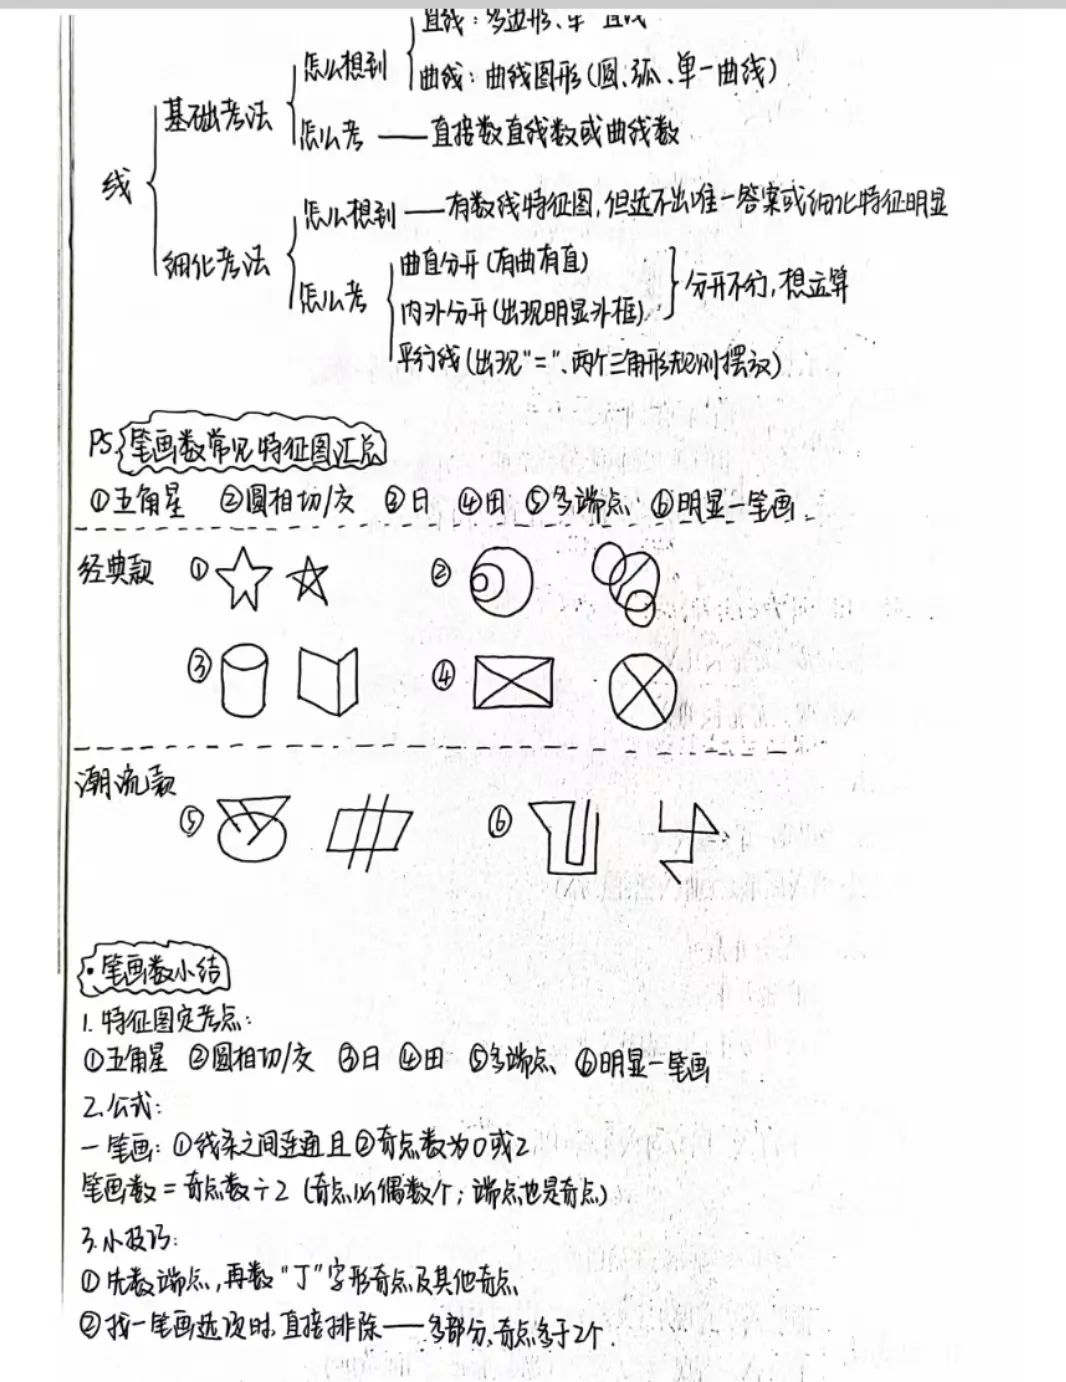 直线：多边形、单一直线
怎么想到
曲线：曲线图形(圆、弧、单一曲线)
基础考法
怎么考——直接数直线数或曲线数
线
怎么想到——有数线特征图，但选不出唯一答案或细化特征明显
细化考法
曲直分开(有曲有直)
怎么考
内外分开(出现明显外框)
分开不行，想运算
平行线(出现"="、两个三角形规则摆放)
PS.笔画数常见特征图汇总
①五角星 ②圆相切/交 ③日 ④田 ⑤多端点 ⑥明显一笔画.
经典款 ① ②
③ ④
潮流款
⑤ ⑥
·笔画数小结
1.特征图定考点：
①五角星 ②圆相切/交 ③日 ④田 ⑤多端点 ⑥明显一笔画
2.公式：
一笔画：①线条之间连通且②奇点数为0或2
笔画数=奇点数÷2 (奇点必偶数个；端点也是奇点)
3.小技巧：
①先数端点，再数"丁"字形奇点及其他奇点
②找一笔画选项时，直接排除——多部分、奇点多于2个.